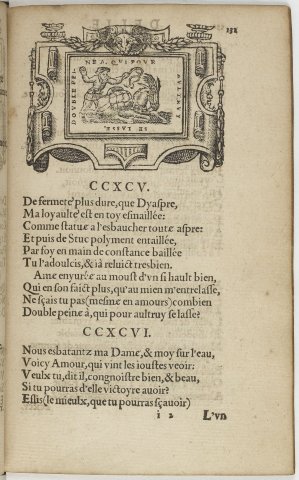 DELIE
132
DOUBLE PEI-
NE A, QUI POUR
AULTRUY
SE LASSE
CCXCV.
De fermete' plus dure, que Dyaspre,
Ma loyaulte' est en toy esmaillée:
Comme statuæ a l'esbaucher toutæ aspre:
Et puis de Stuc polyment entaillée,
Par foy en main de constance baillée
Tu l'adoulcis, & ià reluict tresbien.
Amæ enyurée au moust d'vn si hault bien,
Qui en son faict plus, qu'au mien m'entrelasse,
Ne sçais tu pas (mesmæ en amours) combien
Double peinæ à, qui pour aultruy se lasse?
CCXCVI.
Nous esbatantz ma Damæ, & moy sur l'eau,
Voicy Amour, qui vint les ioustes veoir:
Veulx tu, dit il, congnoistre bien, & beau,
Si tu pourras d'elle victoyre auoir?
Eslis (le mieulx, que tu pourras sçauoir)
i 2 L'vn